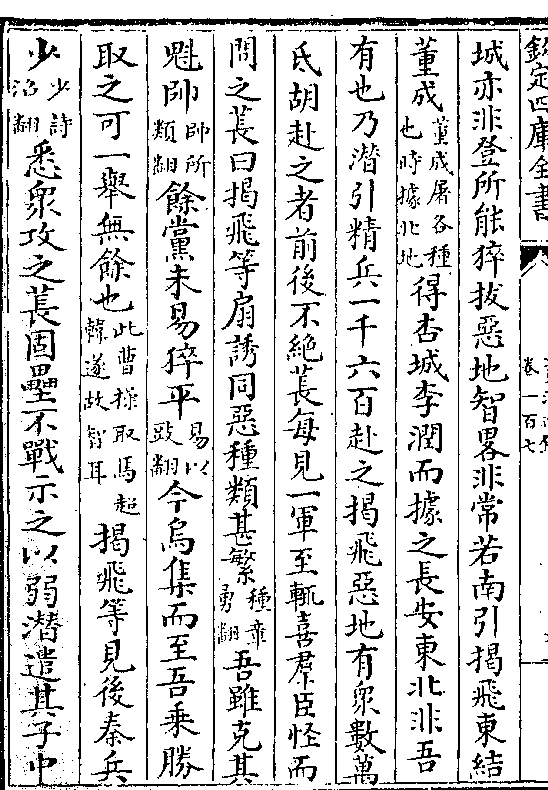 欽定四庫全書
卷一百七
城亦非登所能猝拔惡地智畧非常若南引揭飛東結
董成董成屠各種也時據北地得杏城李潤而據之長安東北非吾
有也乃潜引精兵一千六百赴之揭飛惡地有衆數萬
氐胡赴之者前後不絶萇每見一軍至輒喜羣臣怪而
問之萇曰揭飛等扇誘同惡種類甚繁種章勇翻吾雖克其
魁帥帥所類翻餘黨未易猝平易以豉翻今烏集而至吾乗勝
取之可一舉無餘也此曹操取馬超韓遂故智耳揭飛等見後秦兵
少少詩沼翻悉衆攻之萇固壘不戰示之以弱潜遣其子中